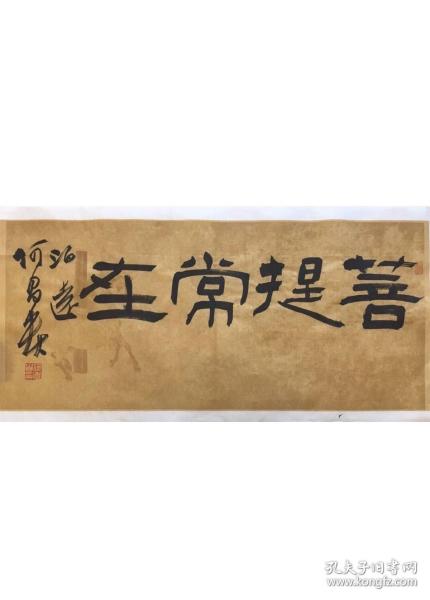 菩提常在
泊远
何昌
孔夫子旧书网
www.kongfz.com